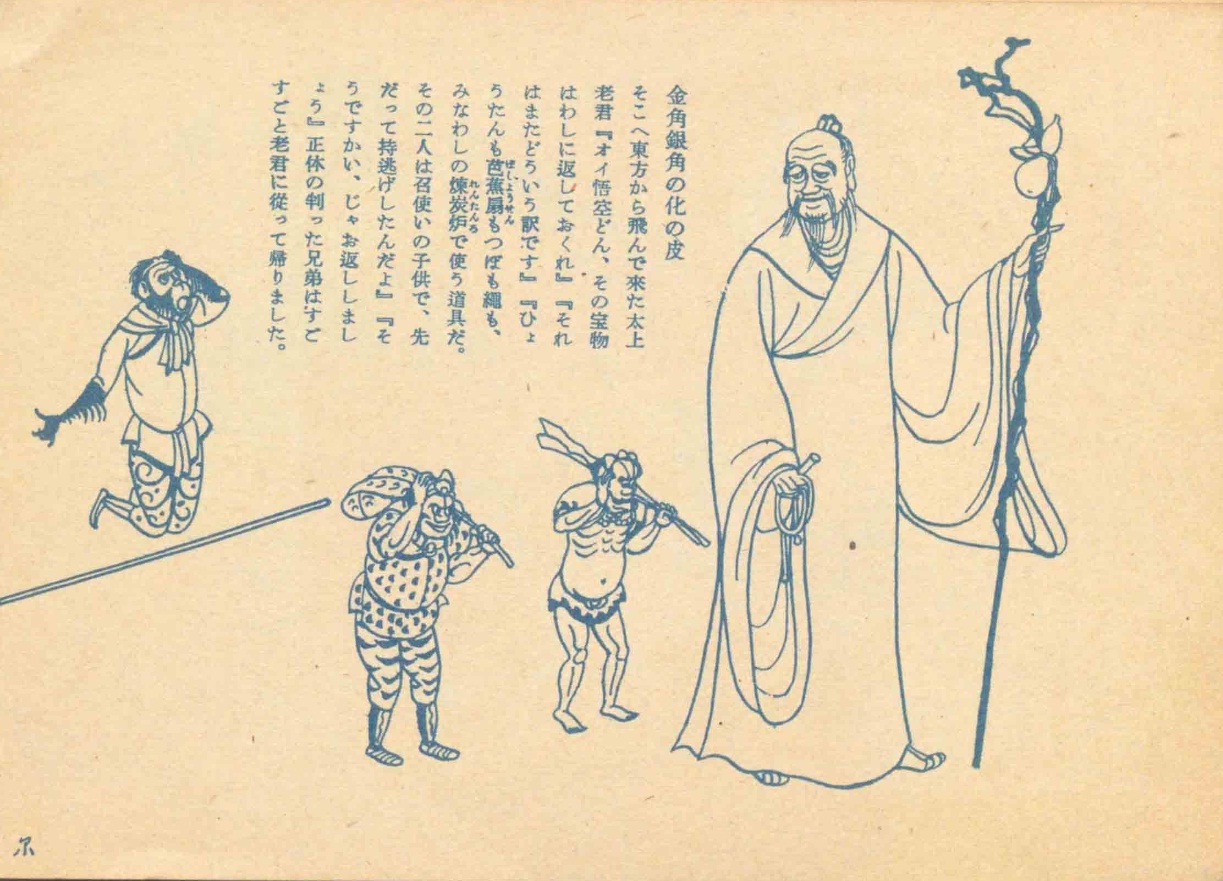 金角銀角の化の皮
そこへ東方から飛んで來た太上
老君『オイ悟空どん、その宝物
はわしに返しておくれ』『それ
はまたどういう訳です』『ひょ
うたんも芭蕉扇もつぼも繩も、
ばしょうせん
みなわしの煉炭炉で使う道具だ。
れんたんろ
その二人は召使いの子供で、先
だって持逃げしたんだよ』『そ
うですかい、じゃお返ししまし
ょう』正体の判った兄弟はすご
すごと老君に從って帰りました。